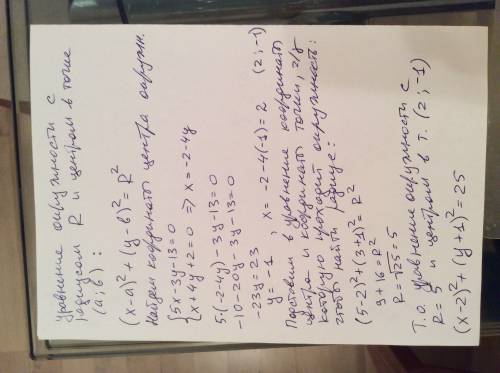 Уравнение окружности с
радиусом R и центром в точке
(a; b) :
(x-a)² + (y-b)² = R²
Найдем координаты центра окружн.
{5x-3y-13=0
{x+4y+2=0 => x=-2-4y
5·(-2-4y)-3y-13=0
-10-20y-3y-13=0
-23y=23
y=-1 , x=-2-4(-1)=2 (2;-1)
Подставим в уравнение координаты
центра и координаты точки, ч/з
которую проходит окружность,
чтобы найти радиус:
(5-2)²+(3+1)²=R²
9+16=R²
R=√25=5
Т.о. уравнение окружности с
R=5 и центром в т. (2;-1)
(x-2)²+(y+1)²=25